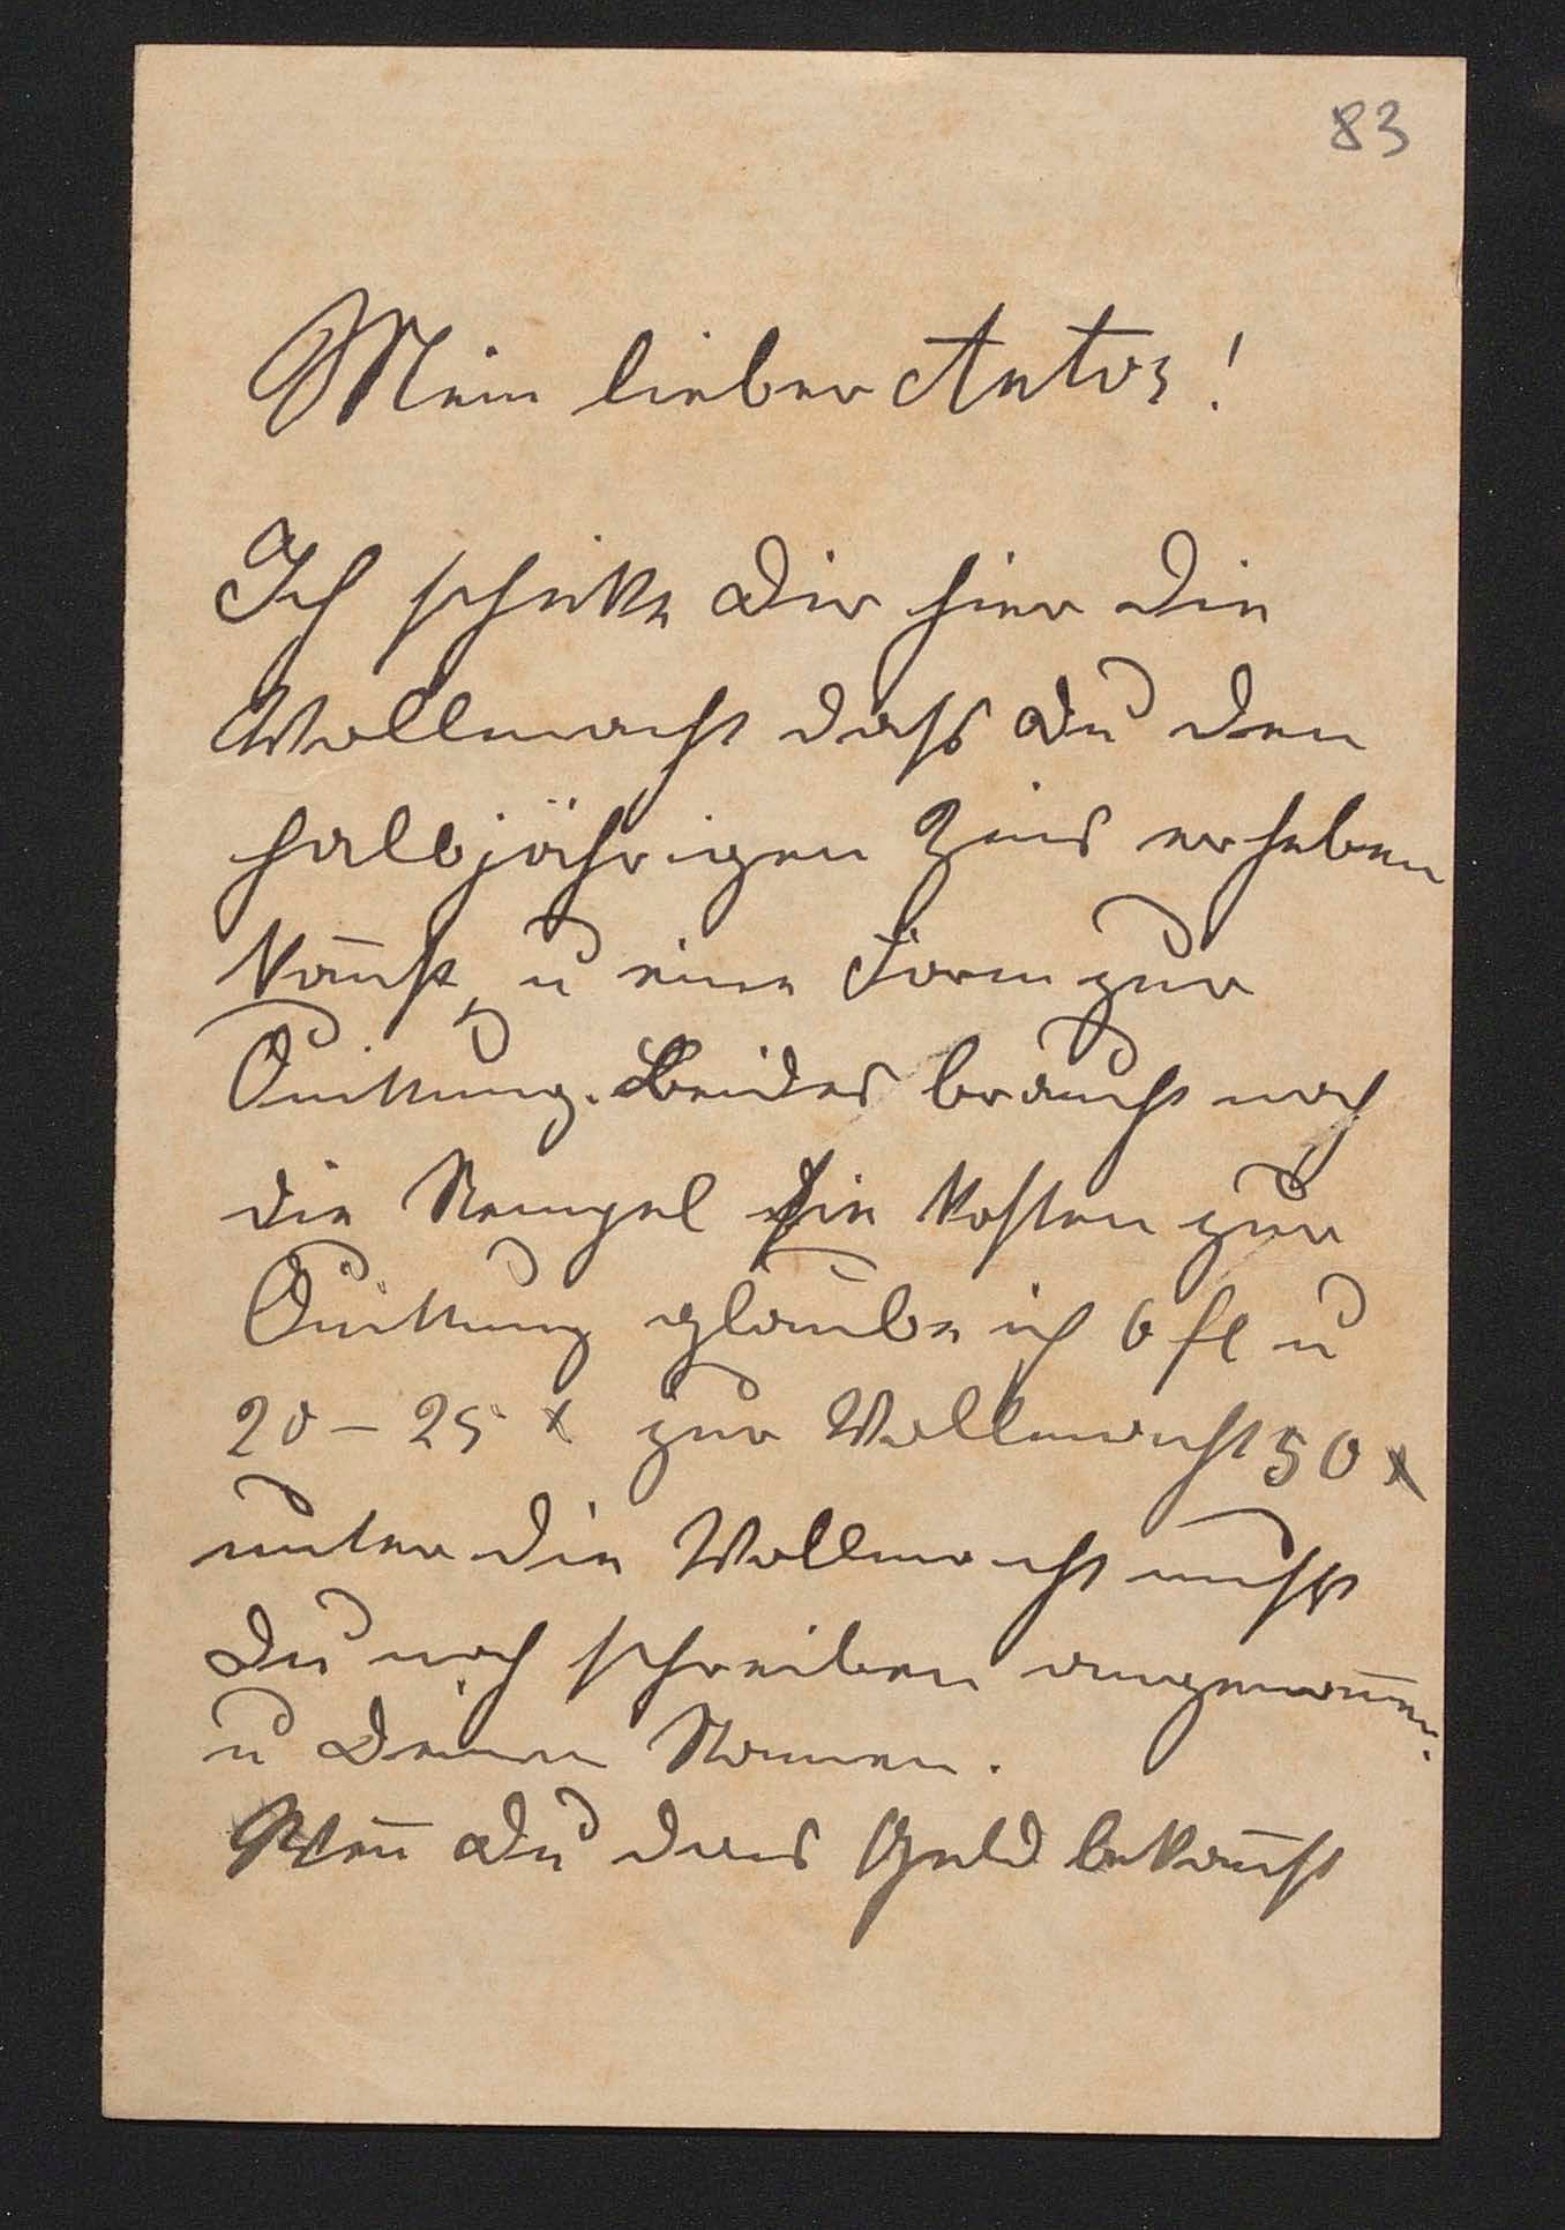 83
Mein lieber Antos!
Ich schicke Dir hier die
Vollmacht daß Du den
halbjährigen Zins erheben
kan̄st, u eine Form zur
Quittung. Beides braucht noch
die Stempel die kosten zur
Quittung glaube ich 6 fl u
20 – 25 x zur Vollmacht 50 x
unter die Vollmacht mußt
Du noch schreiben angenom̄en.
u Deinen Namen.
Wen̄ Du das Geld bekom̄st